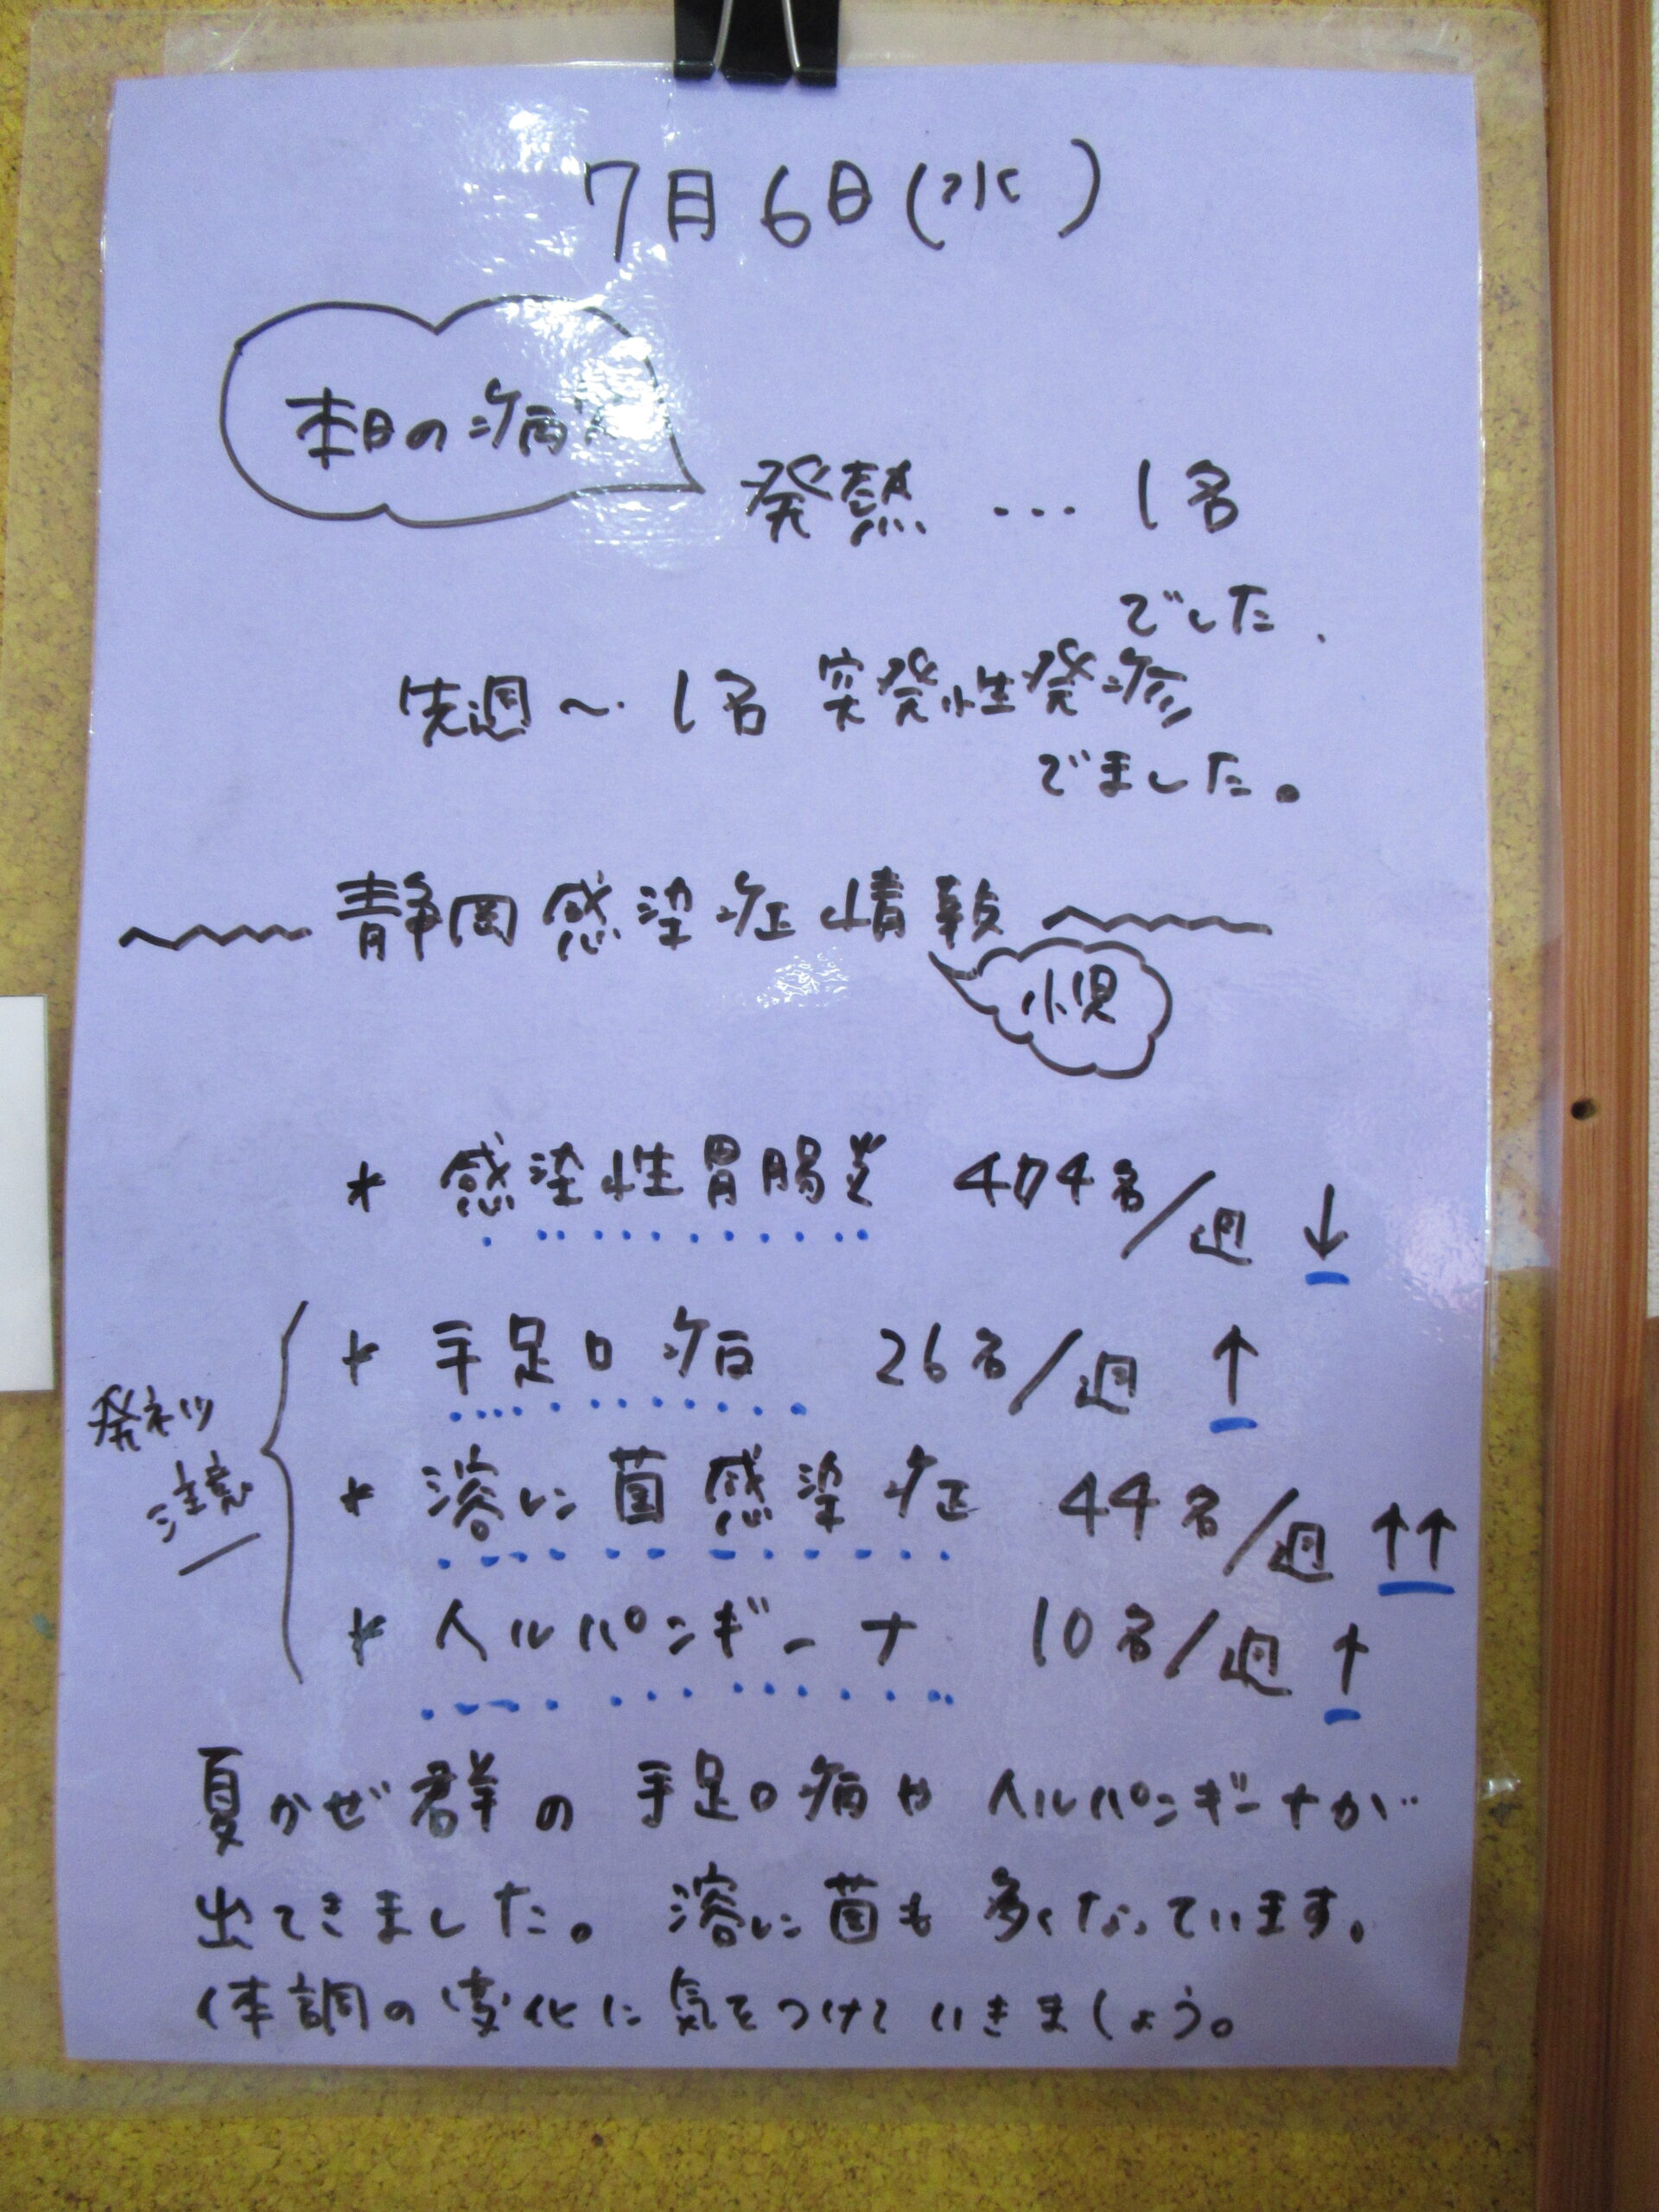 7月6日(水)
本日の病
発熱 … 1名
でした.
先週〜 1名 突発性発疹
でました。
静岡感染症情報
小児
* 感染性胃腸炎 404名/週 ↓
* 手足口病 26名/週 ↑
発ネツ
注意
* 溶レン菌感染症 44名/週 ↑↑
* ヘルパンギーナ 10名/週 ↑
夏かぜ群の 手足口病や ヘルパンギーナが
出てきました。 溶レン菌も 多くなっています。
体調の変化に気をつけて いきましょう。